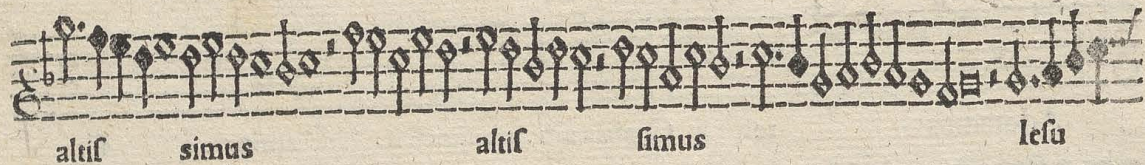 altiſ simus altiſ ſimus Ieſu